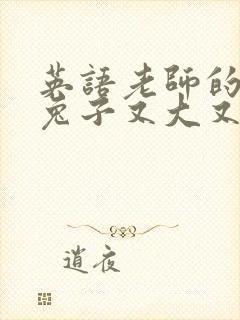 英語老師的
兔子又大又
逍夜